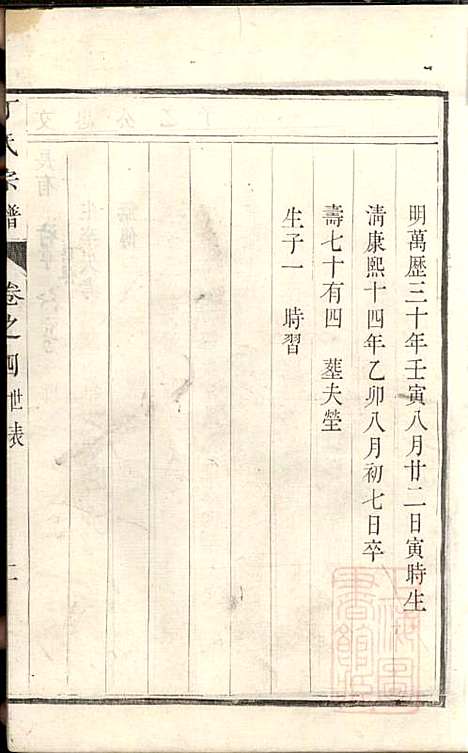 明萬歷三十年壬寅八月廿二日寅時生
清康熙十四年乙卯八月初七日卒
壽七十有四　塟夫塋
生子一　時習
氏宗譜
卷之四
世表